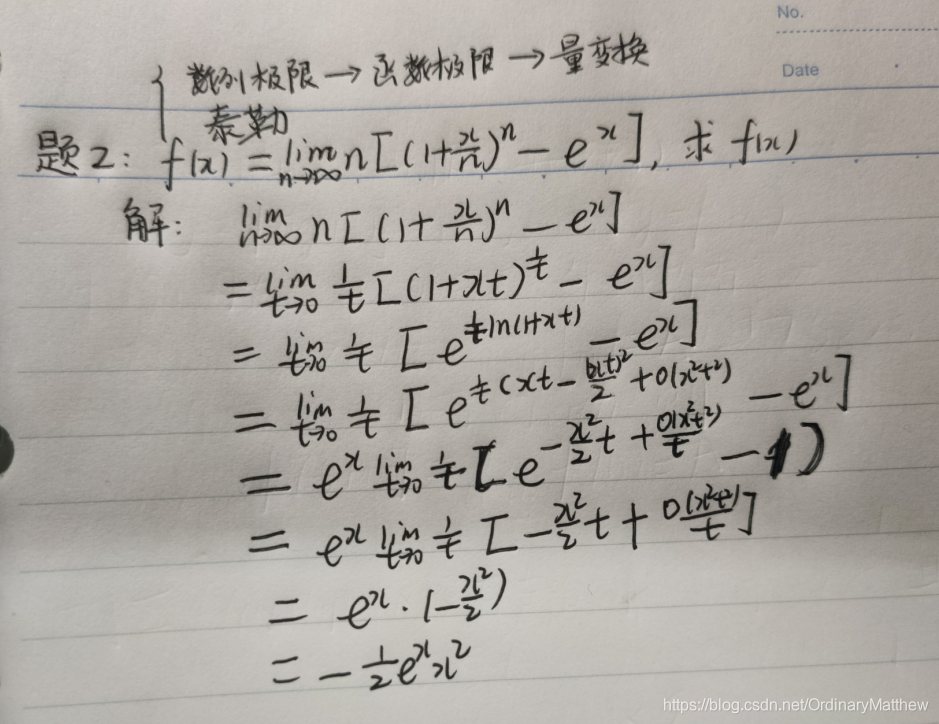 No.
Date
数列极限→函数极限→量变换
泰勒
题2: f(x) = lim n→∞ n[(1+x/n)^n - e^x], 求 f(x)
解: lim n→∞ n[(1+x/n)^n - e^x]
= lim t→0 1/t [(1+xt)^(1/t) - e^x]
= lim t→0 1/t [e^(1/t ln(1+xt)) - e^x]
= lim t→0 1/t [e^(1/t (xt - (xt)^2/2 + o(x^2t^2)) - e^x]
= e^x lim t→0 1/t [e^(-x^2/2 t + o(x^2t^2)/t) - 1)
= e^x lim t→0 1/t [-x^2/2 t + o(x^2t^2)/t]
= e^x · (-x^2/2)
= -1/2 e^x x^2
https://blog.csdn.net/OrdinaryMatthew